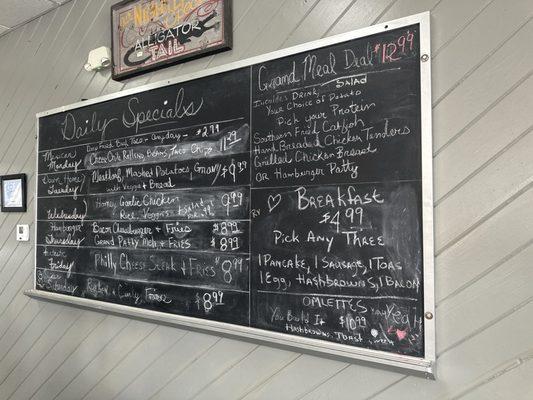 ALLIGATOR
TAIL
Daily Specials
Taco - any day - $2.99
Mexican Monday
Cheese Chile Relleno, Beans, Taco, Chips
Down Home Tuesday
Meatloaf, Mashed Potatoes, Gravy $9.99
with Veggies + Bread
Wednesday
Honey Garlic Chicken 9.99
Rice, Veggies
Hamburger Thursday
Bacon Cheeseburger + Fries $8.99
Grand Patty Melt + Fries $8.99
Friday
Philly Cheese Steak + Fries $8.99
Saturday
Curly Fries $8.99
Grand Meal Deal $12.99
Includes Drink, Salad
Your Choice of Potato
Pick your Protein
Southern Fried Catfish
Hand Breaded Chicken Tenders
Grilled Chicken Breast
OR Hamburger Patty
Breakfast
$4.99
Pick Any Three
1 Pancake, 1 Sausage, 1 Toast
1 Egg, Hashbrowns, 1 Bacon
OMLETTES
You Build It $10.99
Hashbrowns, Toast
Yeah